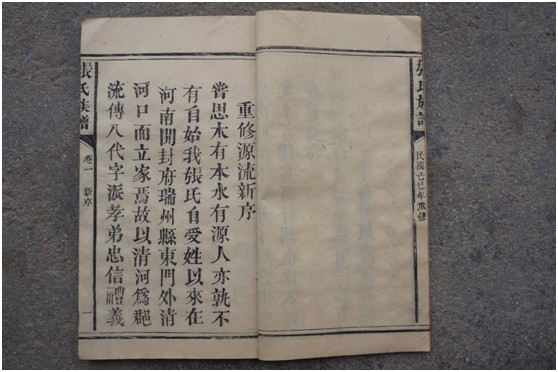 張氏族譜
民國己巳年重修
重修源流新序
嘗思木有本水有源人亦孰不
有自始我張氏自受姓以來在
河南開封府瑞州縣東門外清
河口而立家焉故以清河爲郡
流傳八代字派孝弟忠信禮義
張氏族譜
卷一
新序
一